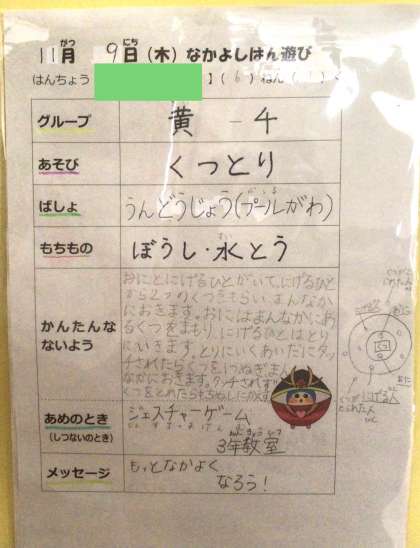 11月(がつ) 9日(にち)(木)なかよしはん遊び
はんちょう 】(6)ねん(
グループ 黄 - 4
あそび くつとり
ばしょ うんどうじょう(プールがわ)
もちもの ぼうし・水とう
かんたんな
ないよう
おにとにげるひとがいて、にげるひと
から2つのくつをもらい、まんなか
におきます。おにはまんなかにあ
るくつをまもり、にげるひとはとり
にいきます。とりにいくあいだにタッ
チされたらくつを1つぬぎ、まん
なかにおきます。タッチされず
くつをとれたら
あめのとき
(しつないのとき)
ジェスチャーゲーム
3年教室
メッセージ もっとなかよく
なろう!
にげる人